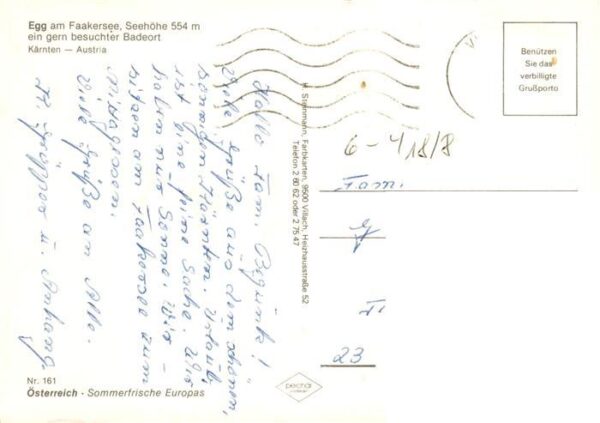 Egg am Faakersee, Seehöhe 554 m
ein gern besuchter Badeort
Kärnten — Austria
Benützen
Sie das
verbilligte
Grußporto
Hallo Fam.
Viele Grüße aus dem schönen,
sonnigen Kärnten. Urlaub
ist eine feine Sache. Wir
haben nur Sonne. Wir
sitzen am Faakersee zum
Viele Grüße an Alle.
H. Steinmann, Farbkarten, 9500 Villach, Heizhausstraße 52
Telefon 2 80 62 oder 2 75 47
6-418/8
Fam.
23
Nr. 161
Österreich - Sommerfrische Europas